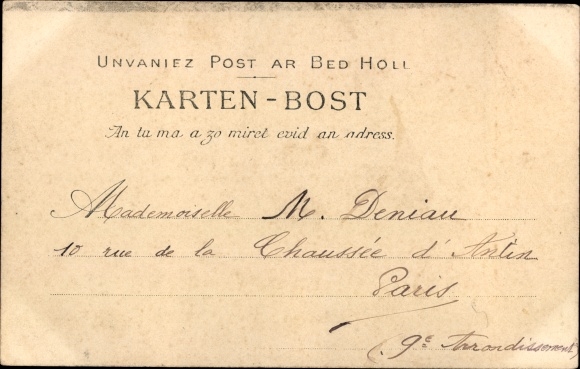 UNVANIEZ POST AR BED HOLL
KARTEN-BOST
An tu ma a zo miret evid an adress.
Mademoiselle M. Deniau
10 rue de la Chaussée d'Antin
Paris
(9e Arrondissement)